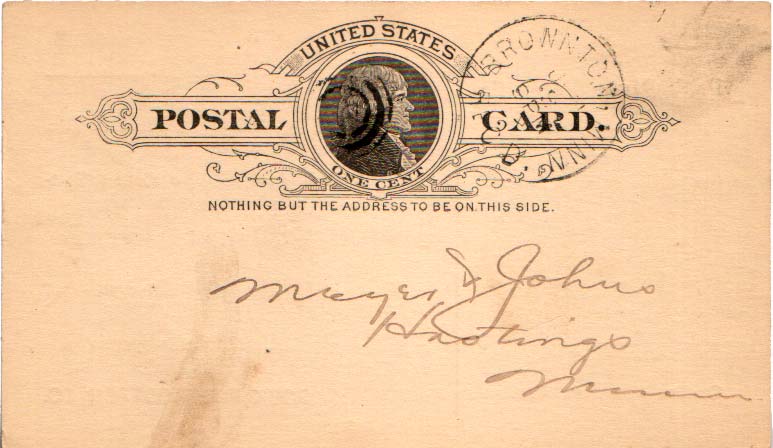 UNITED STATES
POSTAL CARD.
ONE CENT
NOTHING BUT THE ADDRESS TO BE ON THIS SIDE.
BROWNTON MINN
Meyer & Johns
Hastings
Minn